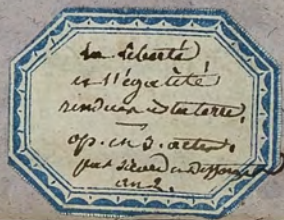 La liberté
et l'égalité
rendues à la terre,
op. en 3. actes.
par
an 2.